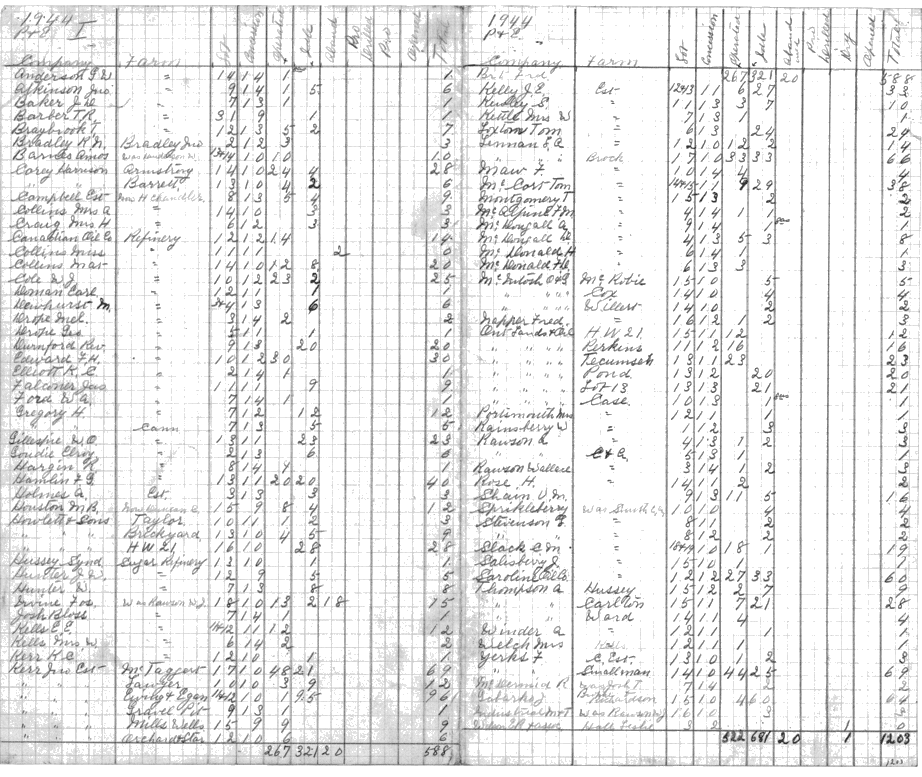 1944
P&E I
Company Farm Lot Concession Operated Idle Aband Pro Drilled Pro Total
Anderson J W " 14 14 1 1
Atkinson Jno. " 9 14 1 5 6
Baker J D " 7 13 1 1
Barber T.R. " 3 9 1 1
Braybrook T. " 12 13 5 2 7
Bradley R N. Bradley Jno 2 12 3 3
Barnes Amos 13+14 10 10 10
Corey Harrison Armstrong 14 10 24 4 28
" " Barrett 13 10 4 2
Campbell Est Mrs H Chandler 8 13 5 4 9
Collins Mrs A " 14 10 3 3
Craig Mrs H " 6 12 3 3
Canadian Oil Co Refinery 12 12 14 14
Collins Miss " 11 11 2 0
Collins Mat " 14 10 12 8 20
Cole W J " 10 12 23 2 25
Doman Carl " 12 11 1 1
Dewhurst M. " 3+4 13 6 6
Drope Mel. " 3 14 2 2
Drope Geo " 5 11 1 1
Durnford Rev. " 9 13 20 20
Edward F.H. " 10 12 30 30
Elliott K.C. " 2 14 1 1
Falconer Jas " 11 11 9 9
Ford W A " 7 14 1 1
Gregory H " 7 12 12 12
" Cann 7 13 5 5
Gillespie W.O. " 13 11 23 23
Goudie Elroy " 2 13 6 6
Hargin R " 8 14 1 1
Hamlin F G. " 13 11 20 20 40
Holmes A. Est. 3 13 3 3
Houston M.B. 15 9 8 4 12
Howlett & Sons Taylor 10 11 1 2 3
" " " Brickyard 13 10 4 5 9
" " " H W 21 16 10 28 28
Hussey Synd Sugar Refinery 13 10 1 1
Hunter J W. " 12 9 5 5
Hunter W. " 7 13 8 8
Irvine Fos. Was Rawson W.J. 18 10 13 2 18 15
Josh Bloss " 7 14 1 1
Kells E.E. " 11+12 11 12 12
Kells Mrs W " 6 14 2 2
Kerr K.C. " 12 10 1 1
Kerr Jno Est McTaggart 17 10 48 21 69
" " " Sawyer 10 10 3 9
" " " Ewing & Egan 11+12 10 95
" " " Gravel Pit 9 13 1 1
" " " Mills Wells 15 9 9
" " " Orchard & Star 12 10 6 6
267 321 20 588
1944
P&E
Company Farm Lot Concession Operated Idle Aband Pro Drilled Dry Total
Brt Frd. 267 321 20 588
Kelly J.E. Est 12+13 11 6 27
Kelley S. " 11 13 3 7 10
Kettle Mrs W " 7 13 1 1
Loxton Tom " 6 13 24 24
Lennan E A " 12 10 12 2 14
" Brock 17 10 33 33 66
Maw F. " 10 14 4 4
McCort Tom " 14+15 11 9 29 38
Montgomery T " 15 13 2 2
McAlpine F M " 4 14 1
McDougall A " 9 14 1
McDougall D. " 4 13 5 3 8
McDonald H " 6 14 1 1
McDonald F.D. " 6 13 3
McIntosh O&G McRobie 15 10 5 5
" " " Cox 14 10 4 4
" " " Willert 14 10 2
Napper Fred. " 16 12 1 2
Ont Lands & Oil H W 21. 15 11 12 12
" " " Perkins 11 12 16 16
" " " Tecumseh 13 11 23 23
" " " Pond 13 12 20 20
" " " Lot 13 13 13 21 21
" " " Case. 10 13 1 1
Portsmouth Mrs " 12 11 1
Rainsberry W " 11 2 3
Rawson A " 4 13 1 2
" C & A. 5 13 1
Rawson Wallace " 3 14 1 2
Rose H. " 14 11 2 2
Shain V.M. " 9 13 11 5 16
Sprickleberry 10 10 4 4
Stevenson F " 8 11 2 2
" " 8 12 2 2
Slack C M. " 18+19 10 18 1 19
Salisbery J. " 15 10 1
Saroline Oil Co. " 12 12 27 33 60
Thompson A Hussey 15 12 2 7 9
" " Carlton 15 11 7 21 28
" " Ward 14 11 4 4
Winder A " 12 11 1 1
Welch Mrs 12 11 1 1
Yerks F C. Est. 13 10 2
" Smallman 14 10 44 25 69
McDermid R 7 14 2
Richardson 15 10 4 60 64
Was Rawson W.J. 16 10
522 681 20 1 1203
1203